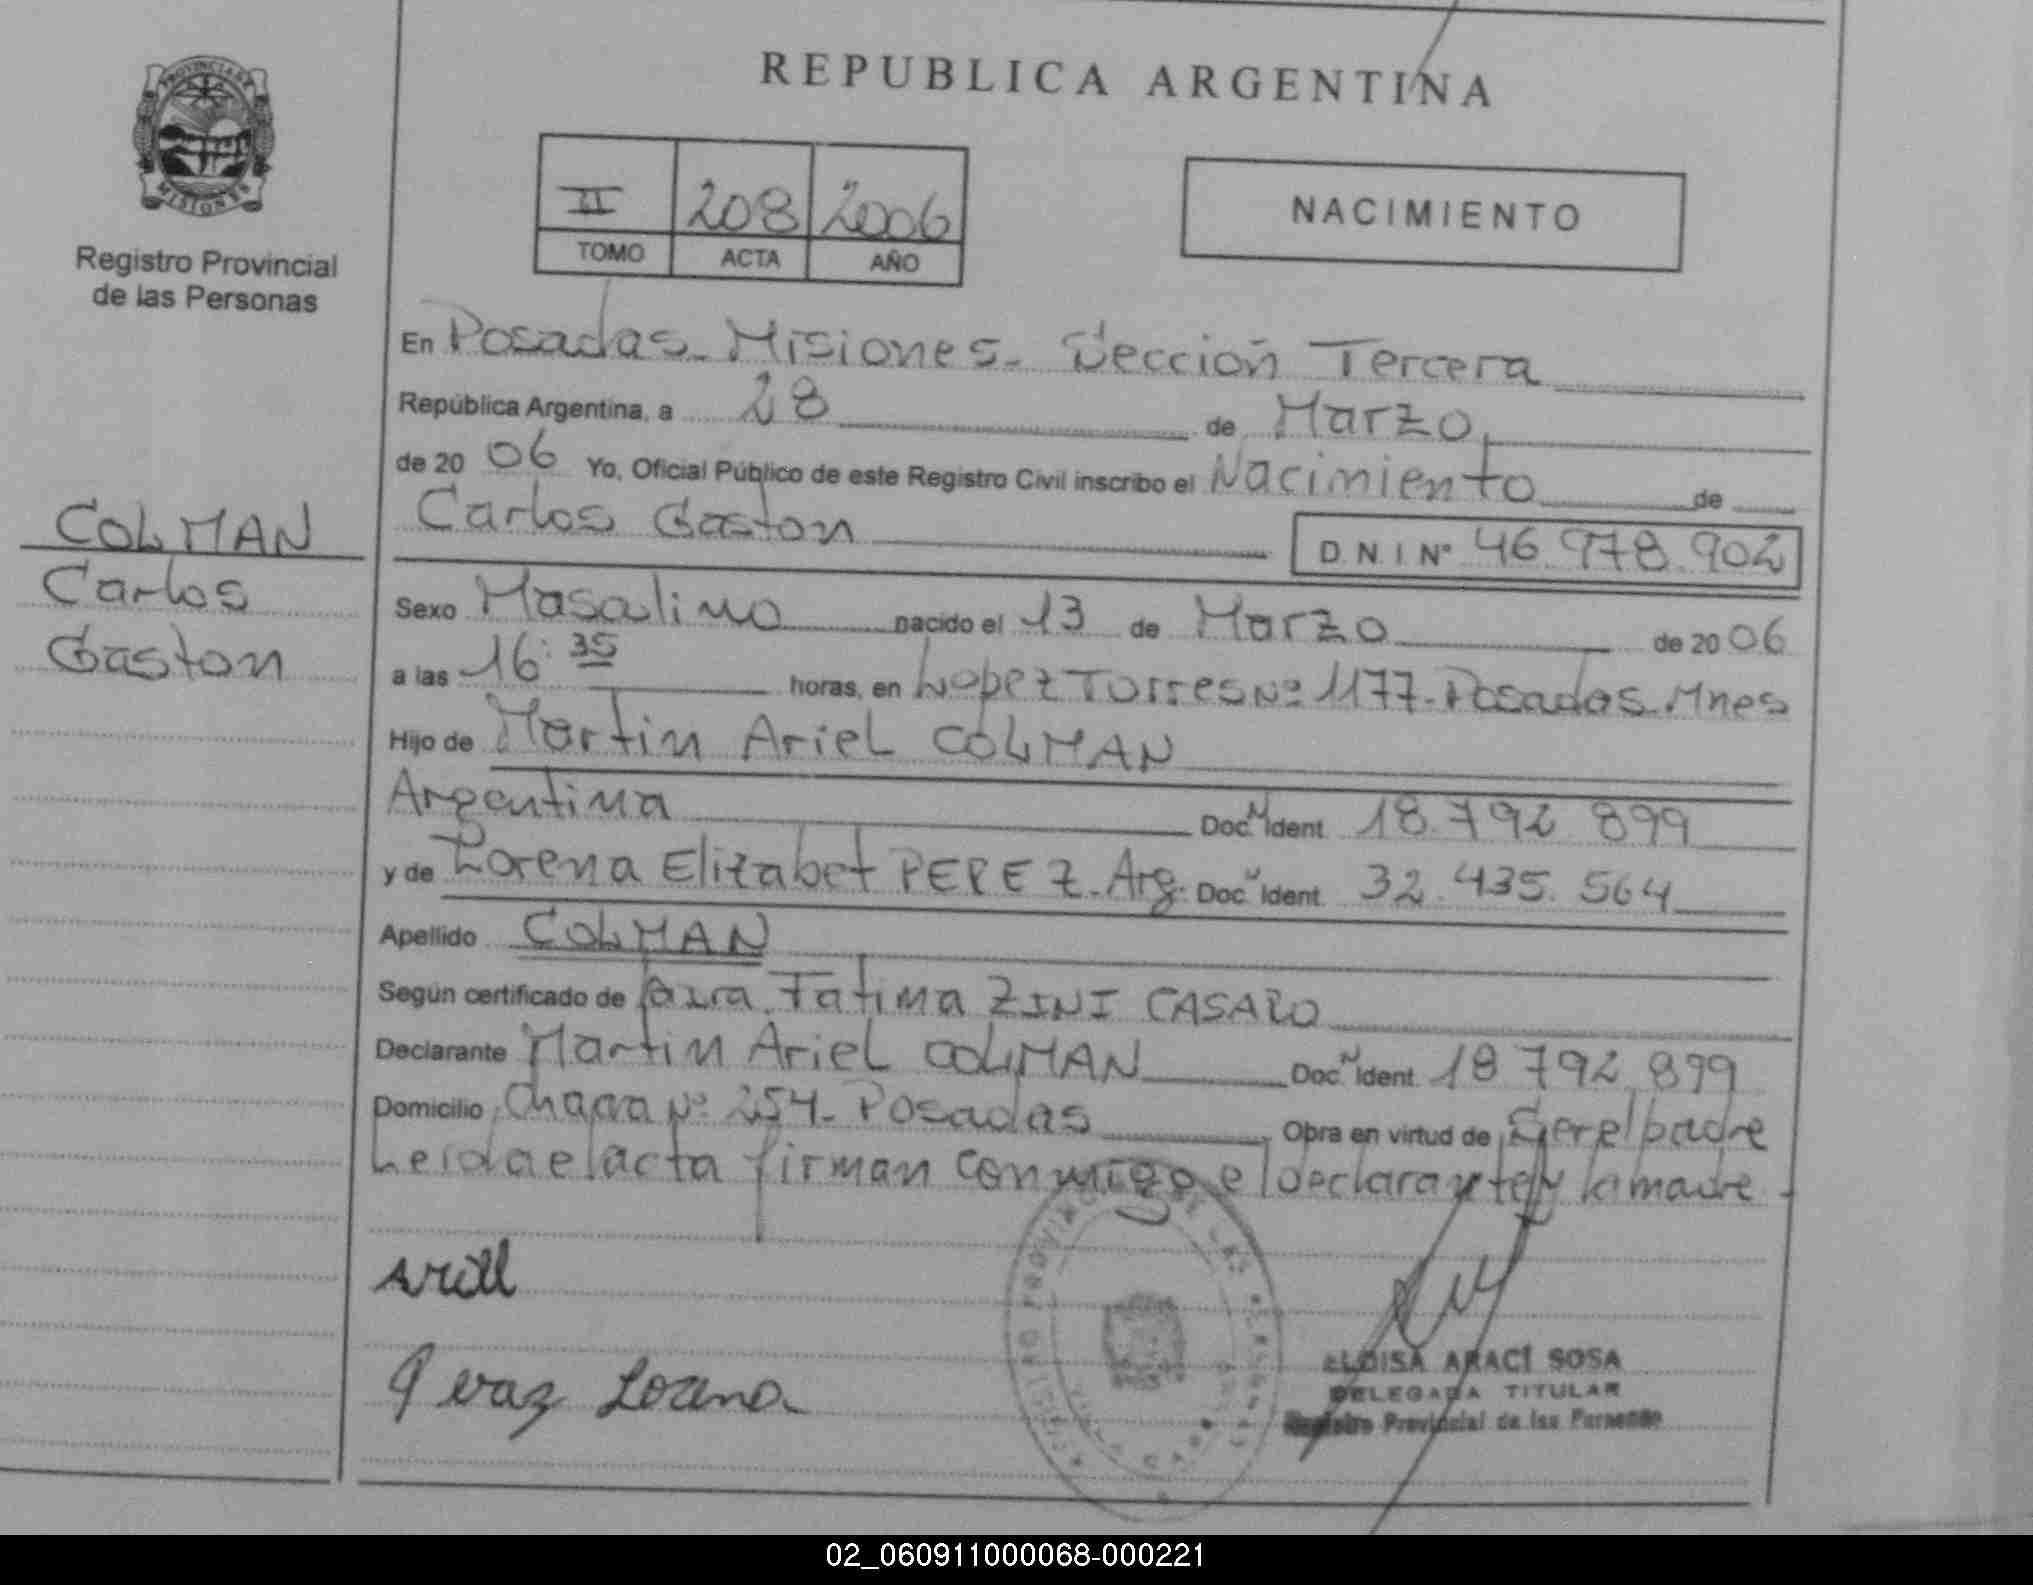 PROVINCIA DE
MISIONES
Registro Provincial
de las Personas
COLMAN
Carlos
Gaston
REPUBLICA ARGENTINA
II 208 2006
TOMO ACTA AÑO
NACIMIENTO
En Posadas - Misiones - Sección Tercera
República Argentina, a 28 de Marzo
de 20 06 Yo, Oficial Público de este Registro Civil inscribo el Nacimiento de
Carlos Gaston
D.N.I Nº 46.978.902
Sexo Masculino nacido el 13 de Marzo de 20 06
a las 16:35 horas, en Lopez Torres Nº 1177 - Posadas - Mnes
Hijo de Martin Ariel COLMAN
Argentina Doc. N Ident. 18.792.899
y de Lorena Elizabet PEREZ - Arg. Doc. N Ident. 32.435.564
Apellido COLMAN
Según certificado de Fatima ZINI CASARO
Declarante Martin Ariel COLMAN Doc. N Ident. 18 792 899
Domicilio Chacra Nº 254 - Posadas Obra en virtud de Ser el padre
Leida el acta firman conmigo el declarante y la madre -
Ariel
Perez Lorena
ELOISA ARACI SOSA
DELEGADA TITULAR
Registro Provincial de las Personas
02_060911000068-000221